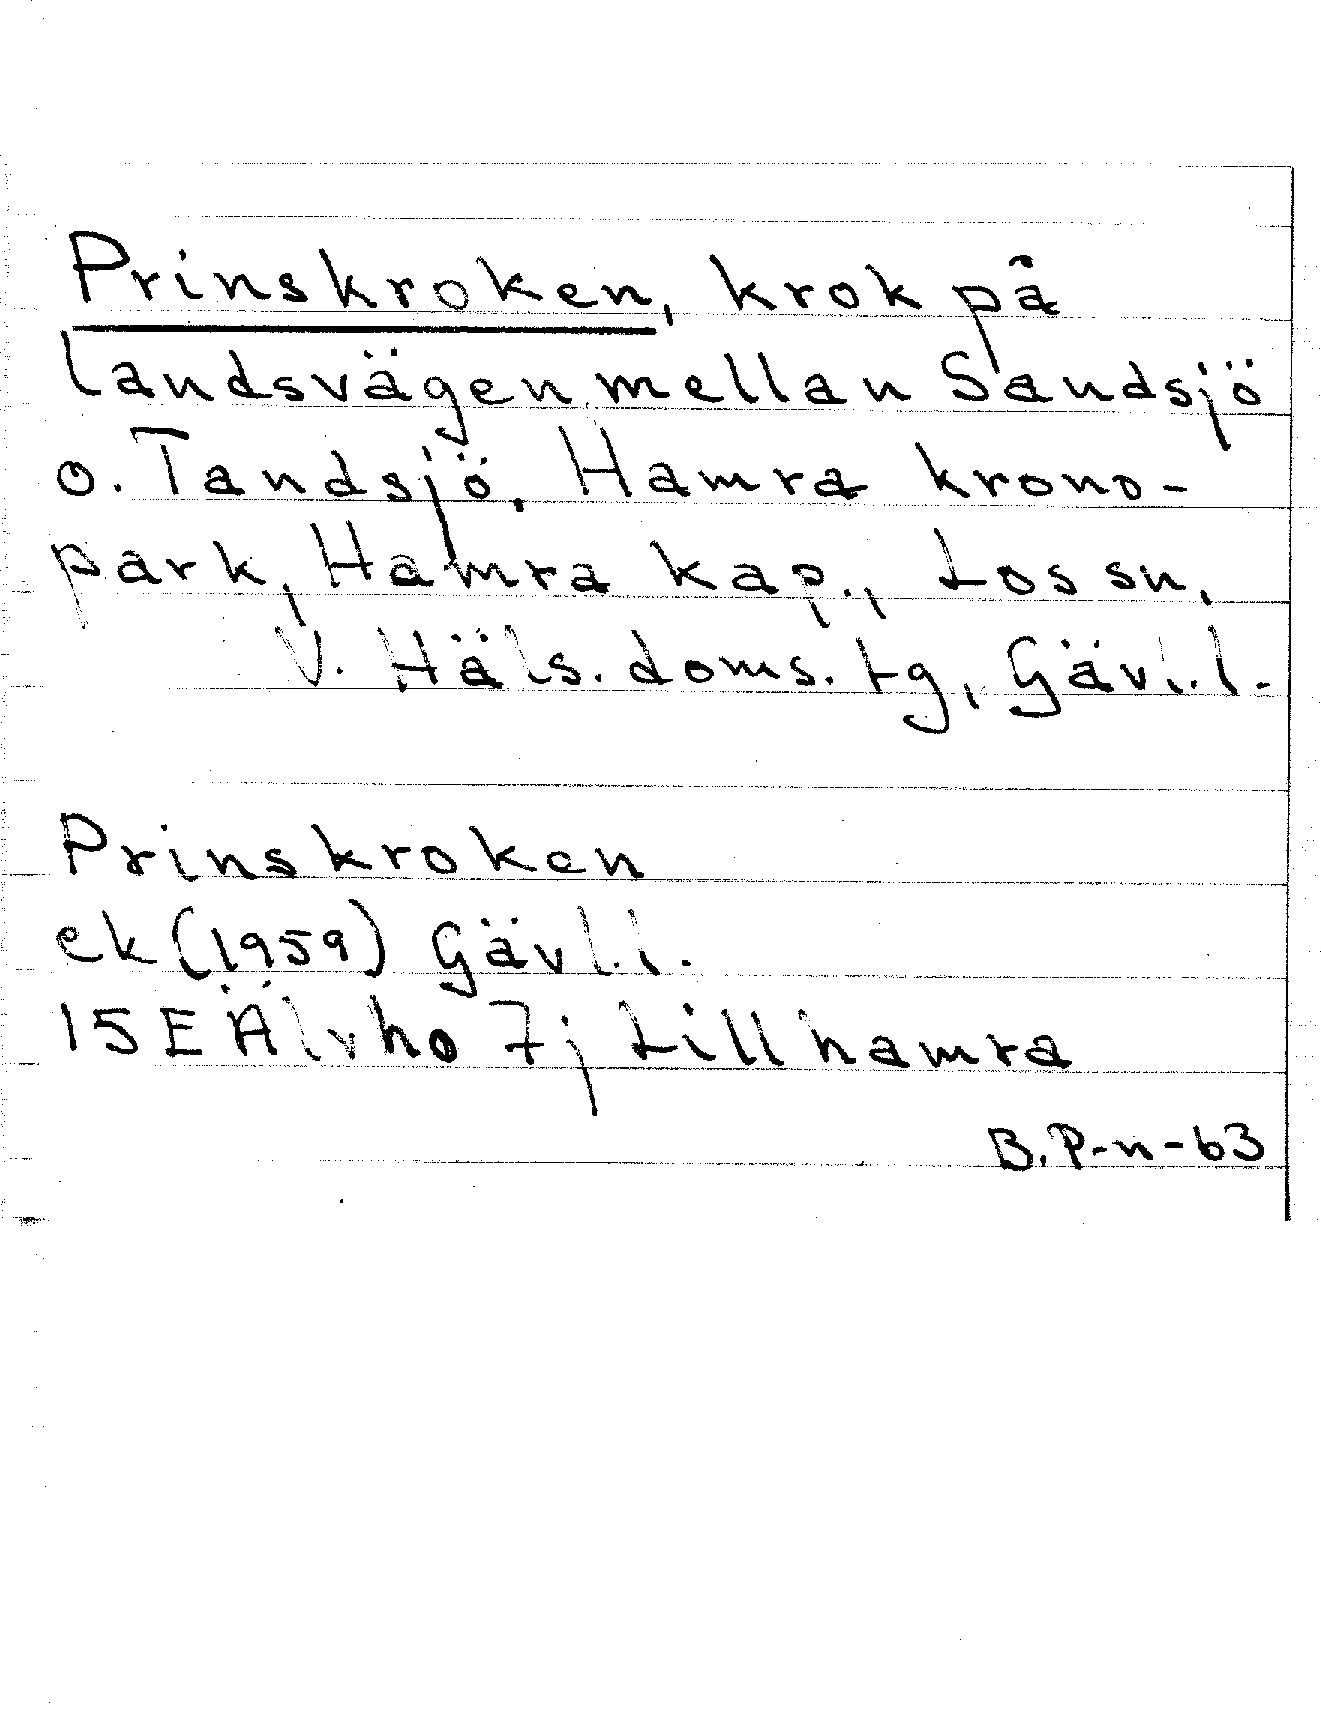 Prinskroken, krok på
landsvägen mellan Sandsjö
o. Tandsjö, Hamra krono-
park, Hamra kap., Los sn,
V. Häls. doms. tg, Gävl. l.
Prinskroken
ek (1959) Gävl. l.
15E Älvho 7j Lillhamra
B. P-n-63